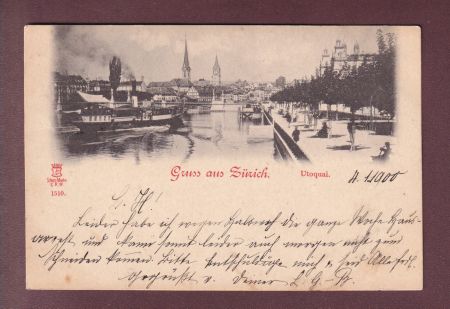 Gruss aus Zürich.
Utoquai.
1510.
4. 1 1900
L. H!
Leider habe ich wegen Halsweh die ganze Woche Haus-
arrest und kann somit leider auch morgen nicht zum
schneiden kommen. Bitte entschuldige mich
Gegrüsst v. Deiner